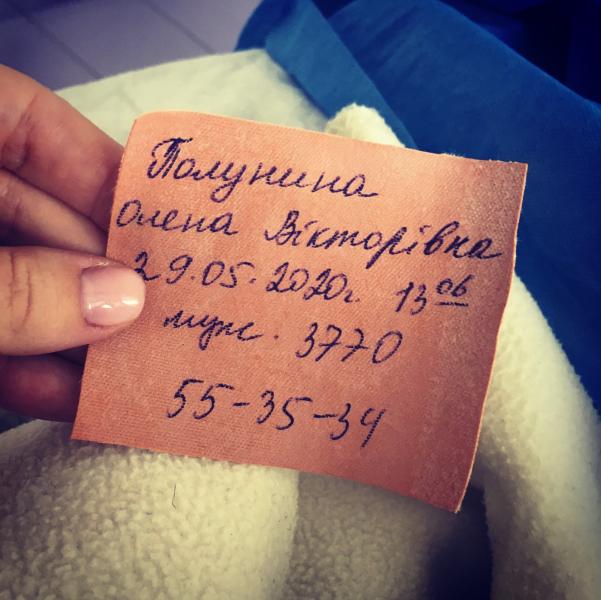 Полунина
Олена Вікторівна
29.05.2020г. 13 06
муж. 3770
55-35-34